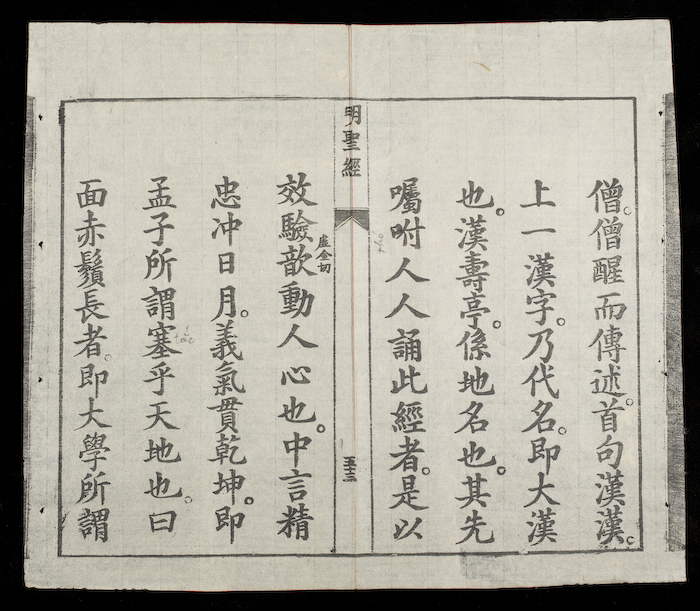 僧。僧醒而傳述。首句漢漢。
上一漢字。乃代名。即大漢
也。漢壽亭。係地名也。其先
囑咐人人誦此經者。是以
明聖經
效驗歆動人心也。中言精
虛金切
忠冲日月。義氣貫乾坤。即
孟子所謂塞乎天地也。曰
面赤鬚長者。即大學所謂